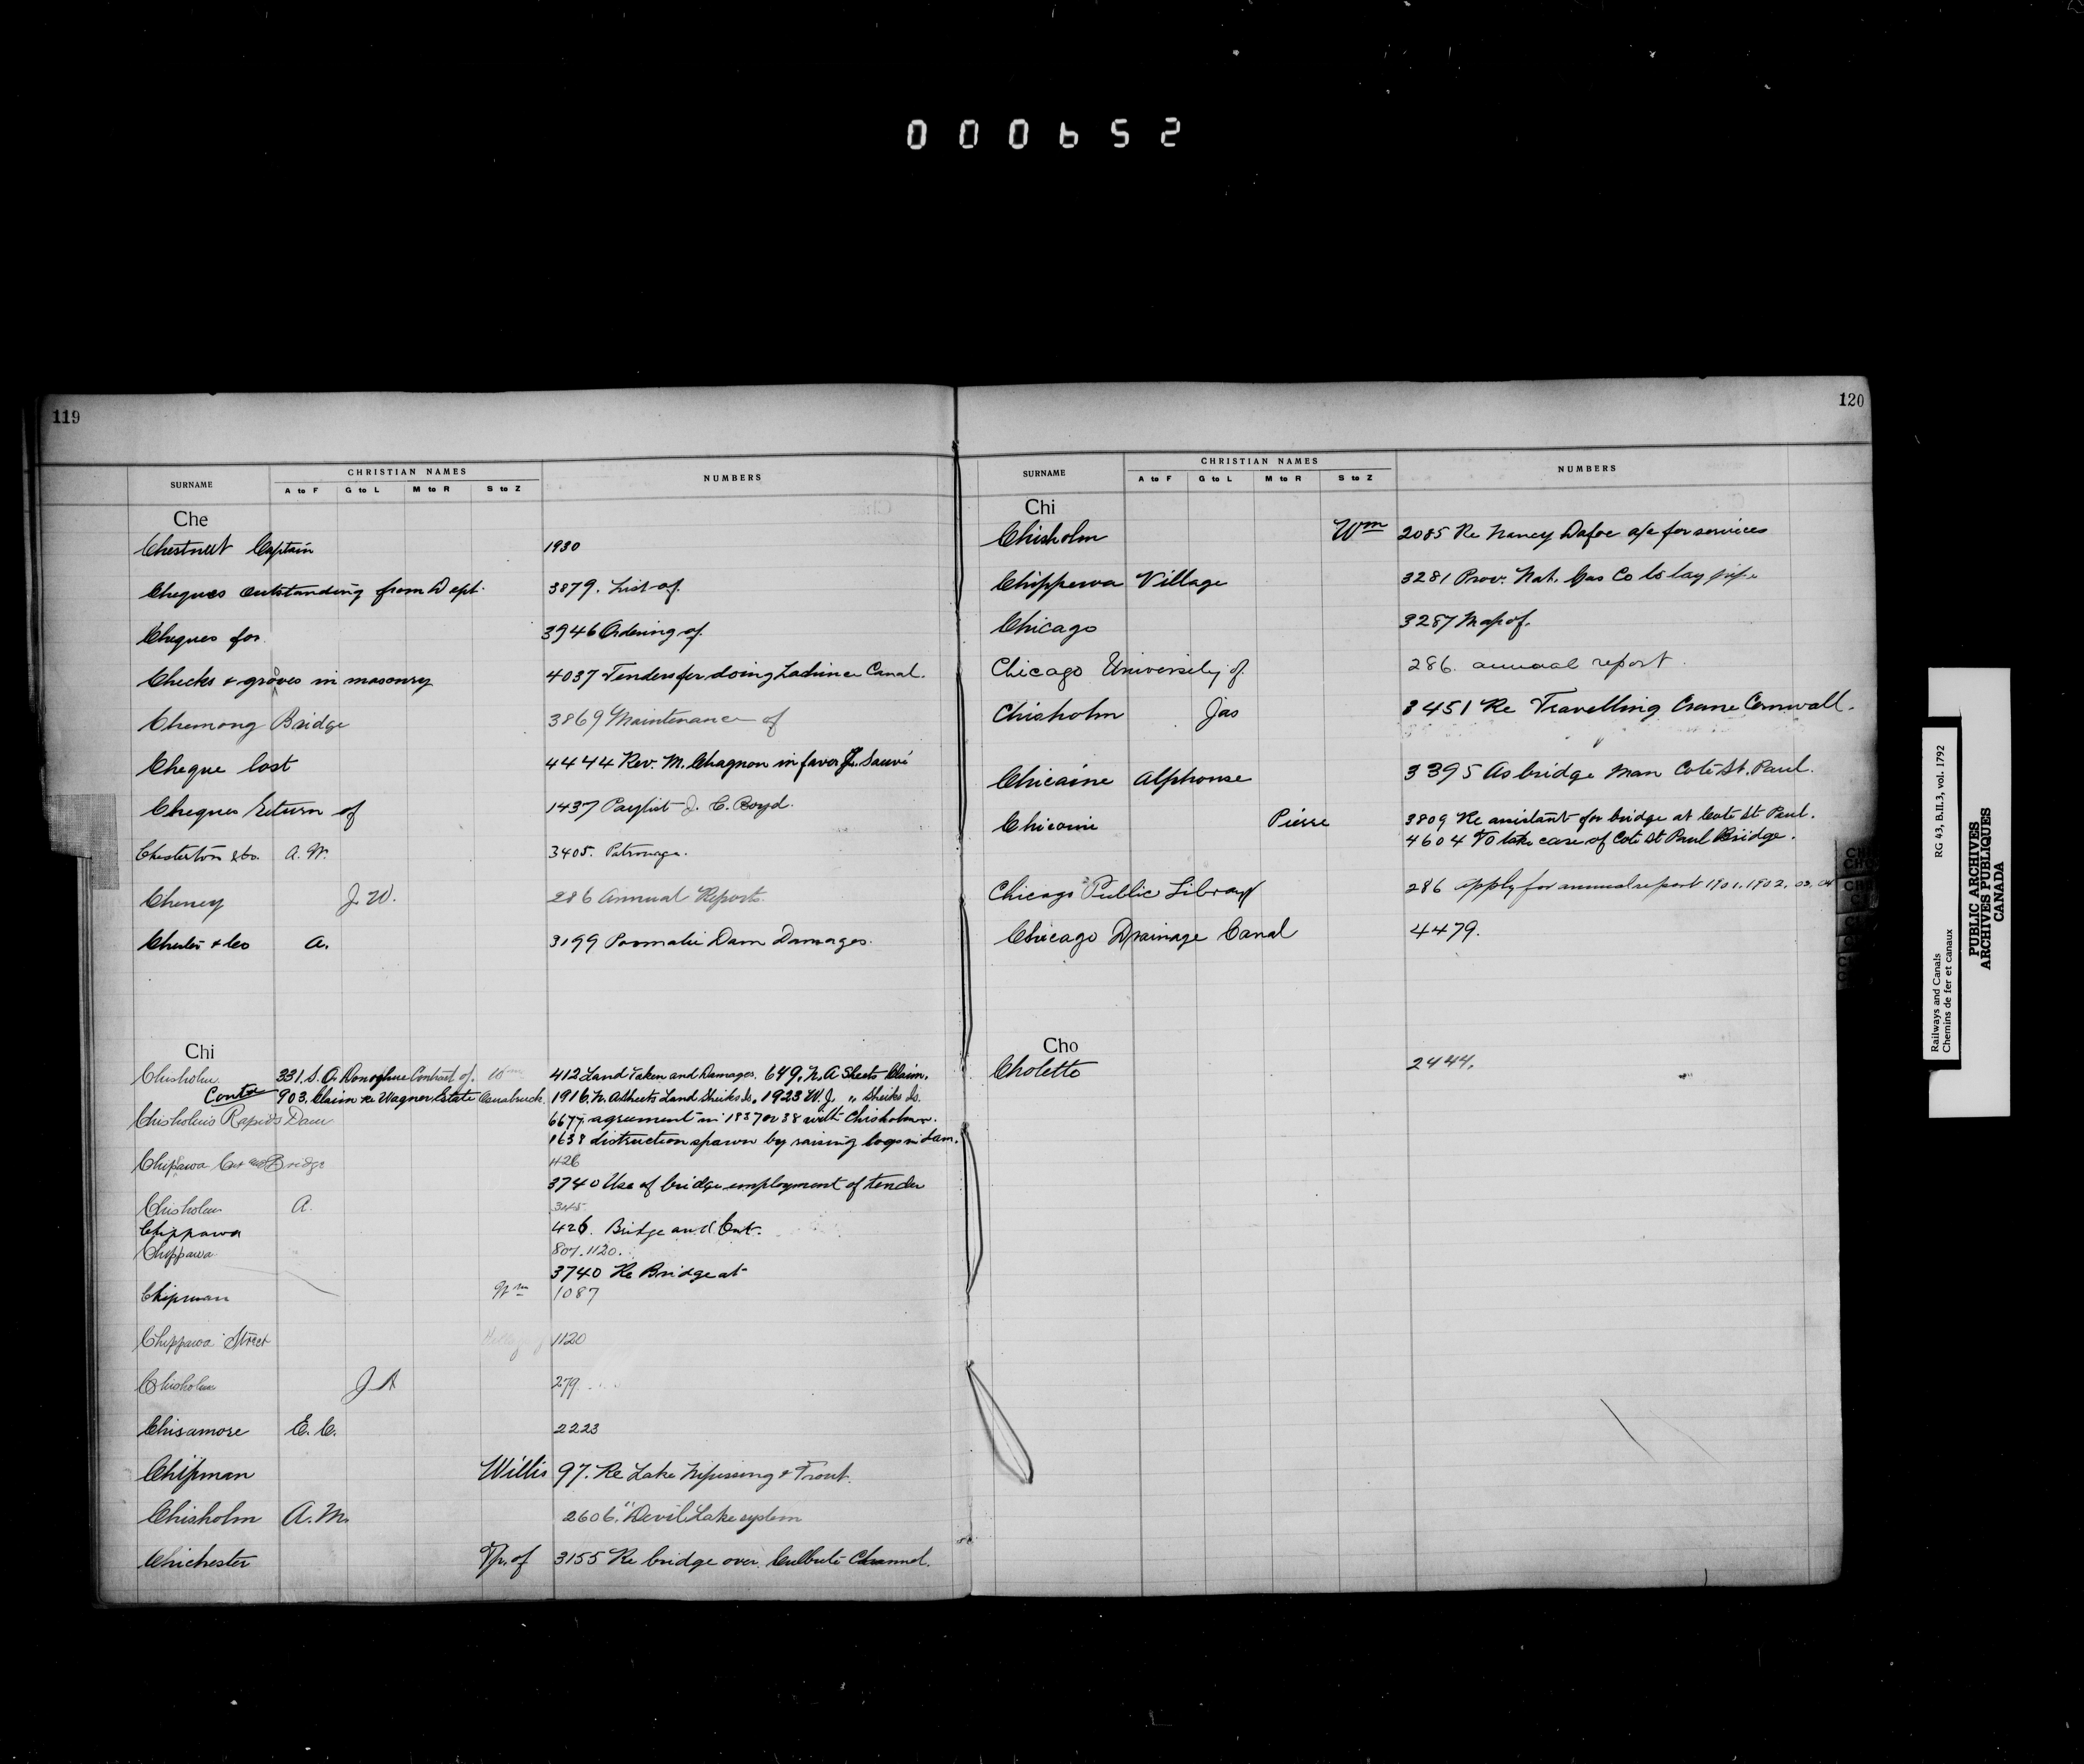 000652
119
SURNAME CHRISTIAN NAMES NUMBERS
A to F G to L M to R S to Z
Che
Chestnut Captain 1930
Cheques outstanding from Dept. 3879. List of.
Cheques for 3946 Ordering of.
Checks & grooves in masonry 4037 Tenders for doing Lachine Canal.
Chemong Bridge 3869 Maintenance of
Cheque lost 4444 Rev. M. Chagnon in favor J. Sauvé
Cheques Return of 1437 Paylist J. C. Boyd.
Chesterton & Co. A. W. 3405. Patronage.
Cheney J. W. 286 Annual Reports.
& Co A. 3199 Dam Damages.
Chi
Chisholm 331. S. O. Donoghue Contract of. Wm 412 Land Taken and Damages. 649. N. A Sheets Claim.
Contr 903. Claim re Wagner Estate Osnabruck. 1916. N. A Sheets Land Sheiks Is. 1923 W. J. " Sheiks Is.
Chisholm's Rapids Dam 6677. agreement in 1837 or 38 with Chisholm
1638 distruction spawn by raising logs in dam.
Chipawa Cut and Bridge 426
3740 Use of bridge employment of tender
Chisholm A. 3045.
Chippawa 426. Bridge and Cut.
Chippawa 807. 1120.
3740 Re Bridge at
Chipman Wm 1087
Chippawa Street 1120
Chisholm J A 279
Chisamore E. C. 2223
Chipman Willis 97. Re Lake Nipissing & Trout.
Chisholm A. M. 2606. " Devil Lake system
Chichester Tp. of 3155 Re bridge over Culbute Channel.
120
SURNAME CHRISTIAN NAMES NUMBERS
A to F G to L M to R S to Z
Chi
Chisholm Wm 2085 Re Nancy Dafoe a/c for services
Chippewa Village 3281 Prov. Nat. Gas Co to lay pipe
Chicago 3287 Map of.
Chicago University of 286. annual report
Chisholm Jas 3451 Re Travelling Crane Cornwall.
Chicaine Alphonse 3395 As bridge man Cote St. Paul.
Chicoine Pierre 3809 Re assistant for bridge at Cote St Paul.
4604 To take care of Cote St Paul Bridge.
Chicago Public Library 286 apply for annual report 1901. 1902. 03. 04
Chicago Drainage Canal 4479.
Cho
Cholette 2444.
Railways and Canals RG 43, B.II.3, vol. 1792
Chemins de fer et canaux
PUBLIC ARCHIVES
ARCHIVES PUBLIQUES
CANADA